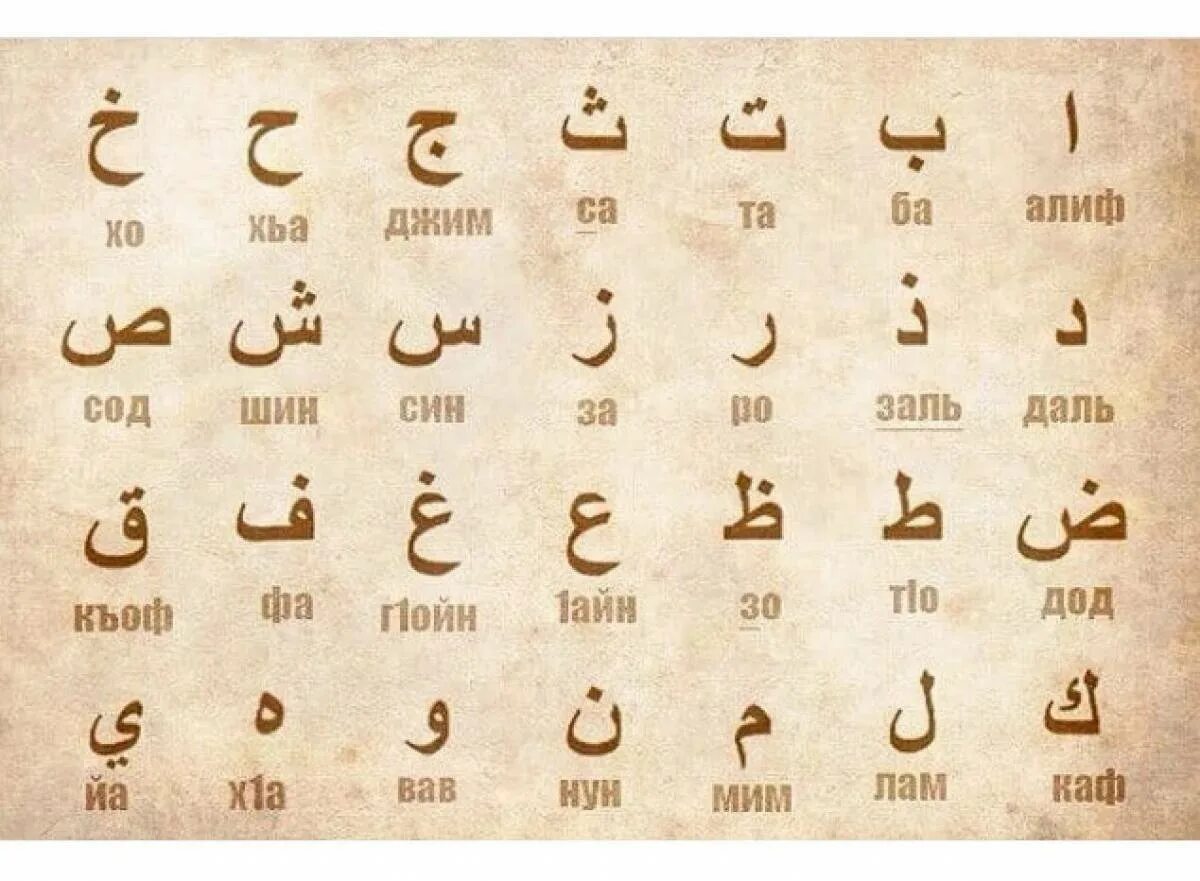 ا ب ت ث ج ح خ
алиф ба та са джим хьа хо
د ذ ر ز س ش ص
даль заль ро за син шин сод
ض ط ظ ع غ ف ق
дод тӀо зо 1айн г1ойн фа къоф
ك ل م ن و ه ي
каф лам мим нун вав х1а йа